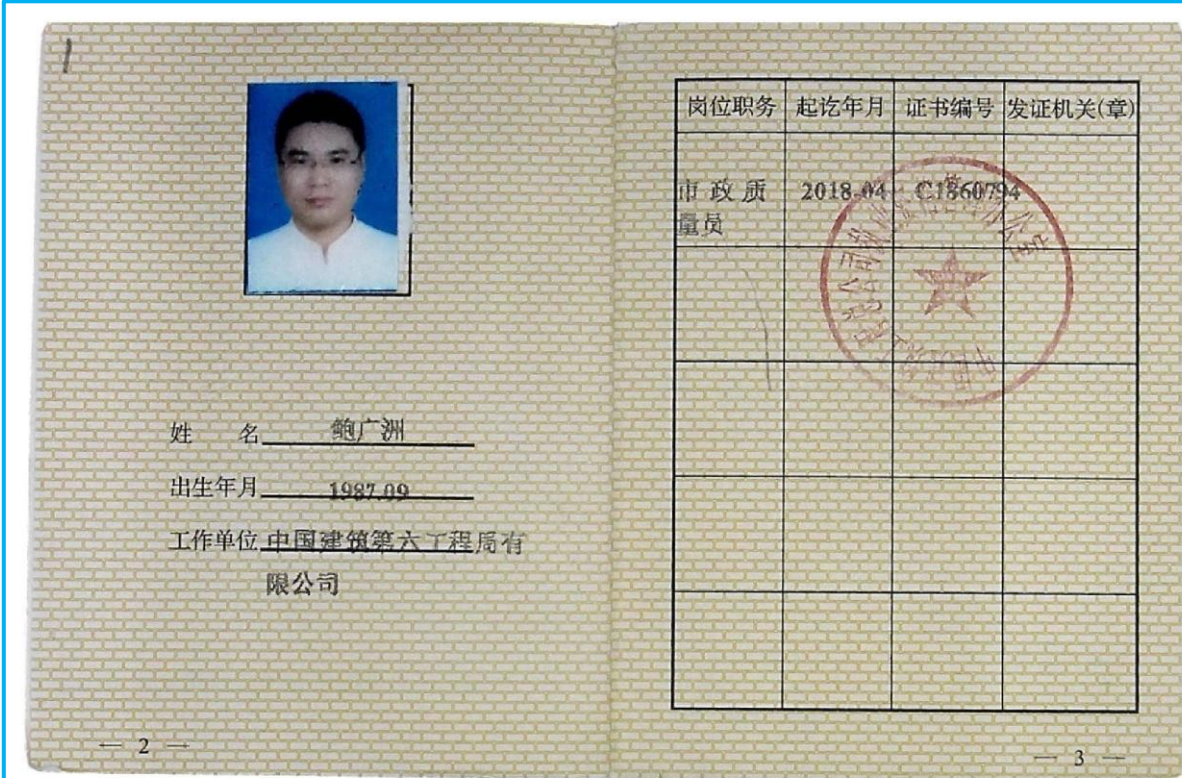 姓 名 鲍广洲
出生年月 1987.09
工作单位 中国建筑第六工程局有
限公司
— 2 —
岗位职务 起讫年月 证书编号 发证机关(章)
市政质 2018-04 C1860794
量员
— 3 —